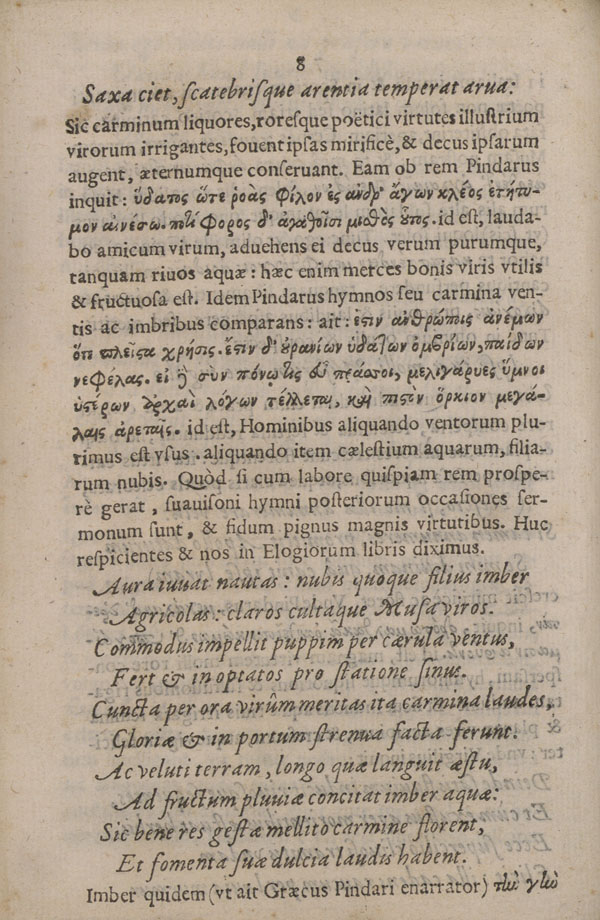 8
Saxa ciet, ſcatebriſque arentia temperat arua:
Sic carminum liquores, roreſque poëtici virtutes illuſtrium
virorum irrigantes, fouent ipſas mirificè, & decus ipſarum
augent, æternumque conſeruant. Eam ob rem Pindarus
inquit: ὕδατος ὥτε ῥοὰς φίλον ἐς ἄνδρ' ἄγων κλέος ἐτήτυ-
μον αἰνέσω. ποτίφορος δ' ἀγαθοῖσι μισθὸς οὗτος. id eſt, lauda-
bo amicum virum, aduehens ei decus verum purumque,
tanquam riuos aquæ: hæc enim merces bonis viris vtilis
& fructuoſa eſt. Idem Pindarus hymnos ſeu carmina ven-
tis ac imbribus comparans: ait: ἔστιν ἀνθρώποις ἀνέμων
ὅτε πλεῖστα χρῆσις. ἔστιν δ' οὐρανίων ὑδάτων ὀμβρίων, παίδων
νεφέλας. εἰ δὲ σὺν πόνῳ τις εὖ πράσσοι, μελιγάρυες ὕμνοι
ὑστέρων ἀρχαὶ λόγων τέλλεται, καὶ πιστὸν ὅρκιον μεγά-
λαις ἀρεταῖς. id eſt, Hominibus aliquando ventorum plu-
rimus eſt vſus. aliquando item cæleſtium aquarum, filia-
rum nubis. Quòd ſi cum labore quiſpiam rem proſpe-
rè gerat, ſuauiſoni hymni poſteriorum occaſiones ſer-
monum ſunt, & fidum pignus magnis virtutibus. Huc
reſpicientes & nos in Elogiorum libris diximus.
Aura iuuat nautas: nubis quoque filius imber
Agricolas: claros cultaque Muſa viros.
Commodus impellit puppim per cærula ventus,
Fert & in optatos pro ſtatione ſinus.
Cuncta per ora virûm meritas ita carmina laudes,
Gloriæ & in portum ſtrenua facta ferunt.
Ac veluti terram, longo quæ languit æſtu,
Ad fructum pluuiæ concitat imber aquæ:
Sic bene res geſtæ mellito carmine florent,
Et fomenta ſuæ dulcia laudis habent.
Imber quidem (vt ait Græcus Pindari enarrator) τὴν γῆν